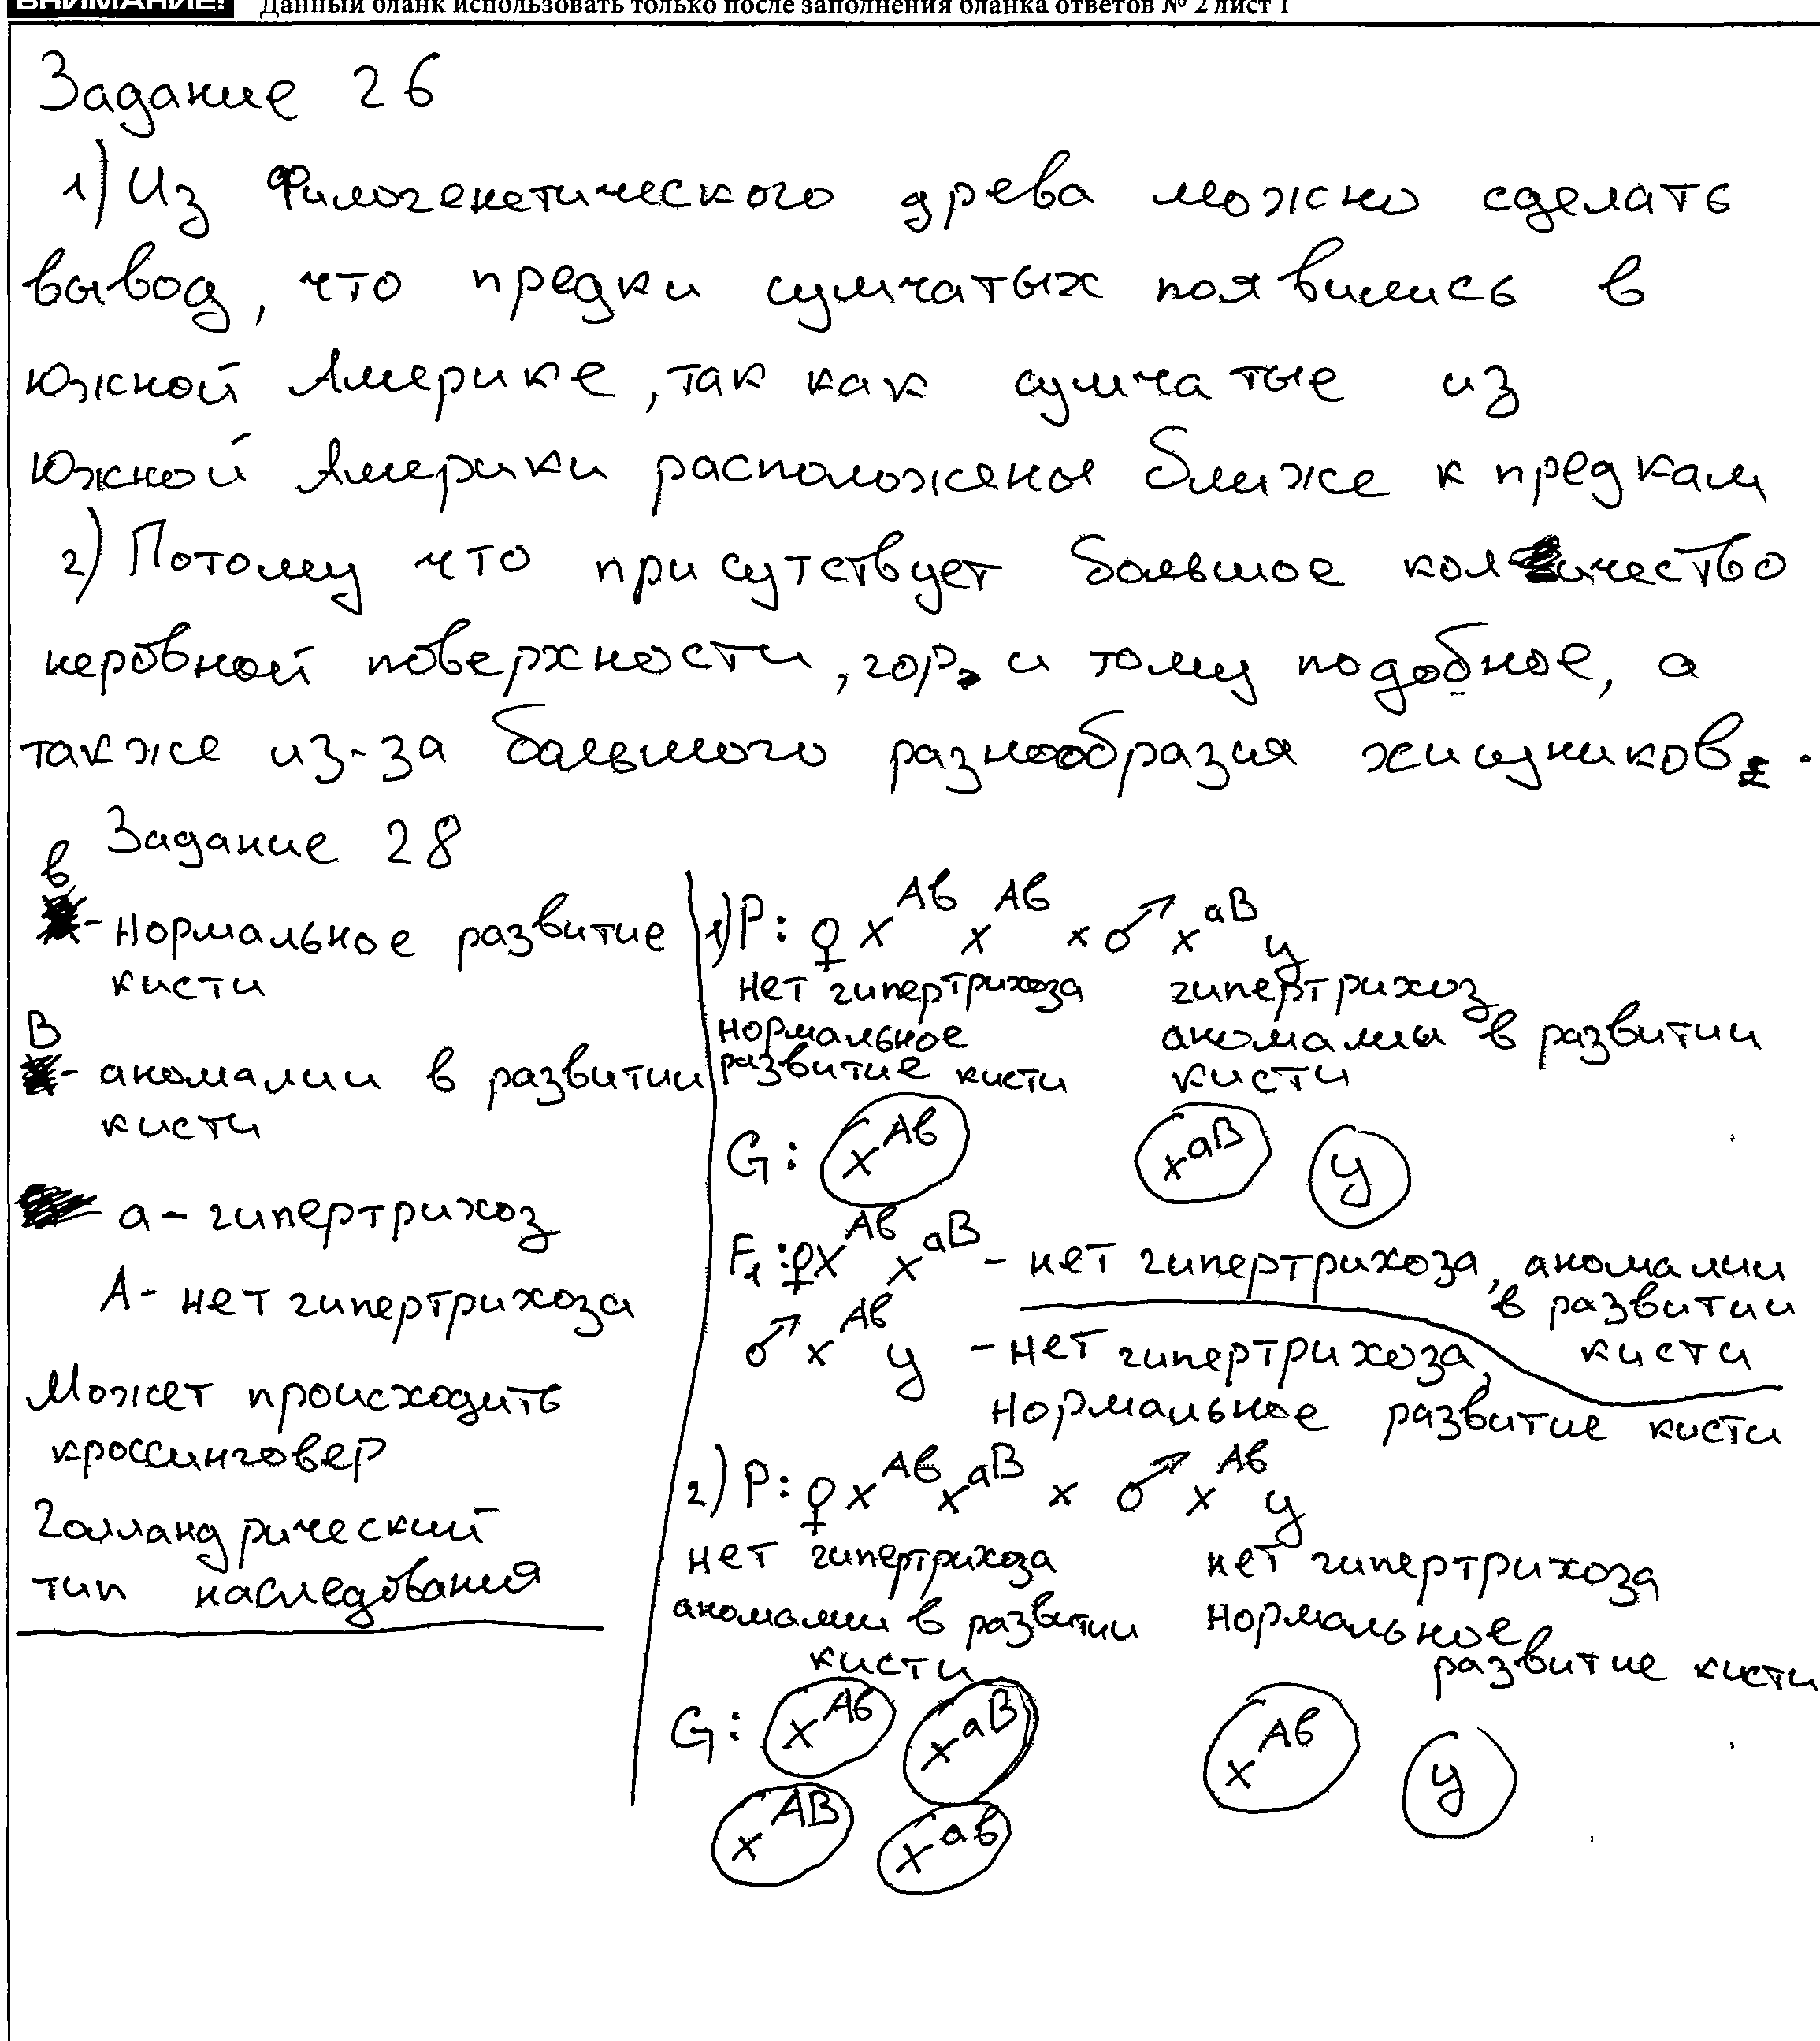 ВНИМАНИЕ! Данный бланк использовать только после заполнения бланка ответов № 2 лист 1
Задание 26
1) Из Филогенетического древа можно сделать
вывод, что предки сумчатых появились в
южной Америке, так как сумчатые из
Южной Америки расположены ближе к предкам
2) Потому что присутствует большое количество
неровной поверхности, гор, и тому подобное, а
также из-за большого разнообразия хищников.
Задание 28
в
- нормальное развитие
кисти
В
- аномалии в развитии
кисти
а - гипертрихоз
А - нет гипертрихоза
Может происходить
кроссинговер
Голландрический
тип наследования
1) P: ♀ x^Ав x^Ав × ♂ x^аВ y
нет гипертрихоза гипертрихоз
нормальное аномалии в развитии
развитие кисти кисти
G: x^Ав x^аВ y
F1: ♀ x^Ав x^аВ - нет гипертрихоза, аномалии
в развитии
кисти
♂ x^Ав y - нет гипертрихоза,
нормальное развитие кисти
2) P: ♀ x^Ав x^аВ × ♂ x^Ав y
нет гипертрихоза нет гипертрихоза
аномалии в развитии нормальное
кисти развитие кисти
G: x^Ав x^аВ x^Ав y
x^АВ x^ав